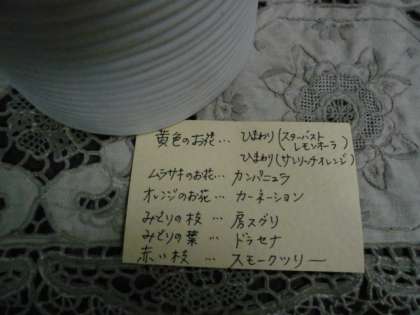 黄色のお花… ひまわり(スターバスト
レモンオーラ)
ひまわり(サンリッチオレンジ)
ムラサキのお花… カンパニュラ
オレンジのお花… カーネーション
みどりの枝 … 房スグリ
みどりの葉 … ドラセナ
赤い枝 … スモークツリー